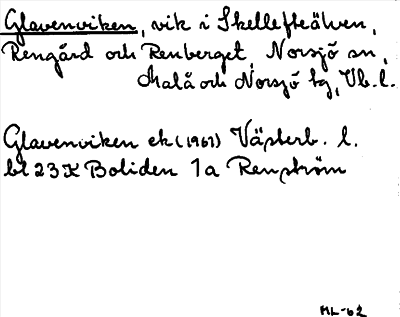 Glavenviken, vik i Skellefteälven,
Rengård och Renberget, Norsjö sn,
Malå och Norsjö tg, Vb. l.
Glavenviken ek (1961) Västerb. l.
bl 23 K Boliden 1a Renström
ML-62